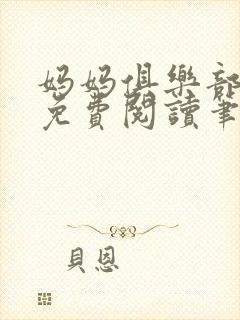 媽媽俱樂部
免費閱讀筆
貝恩